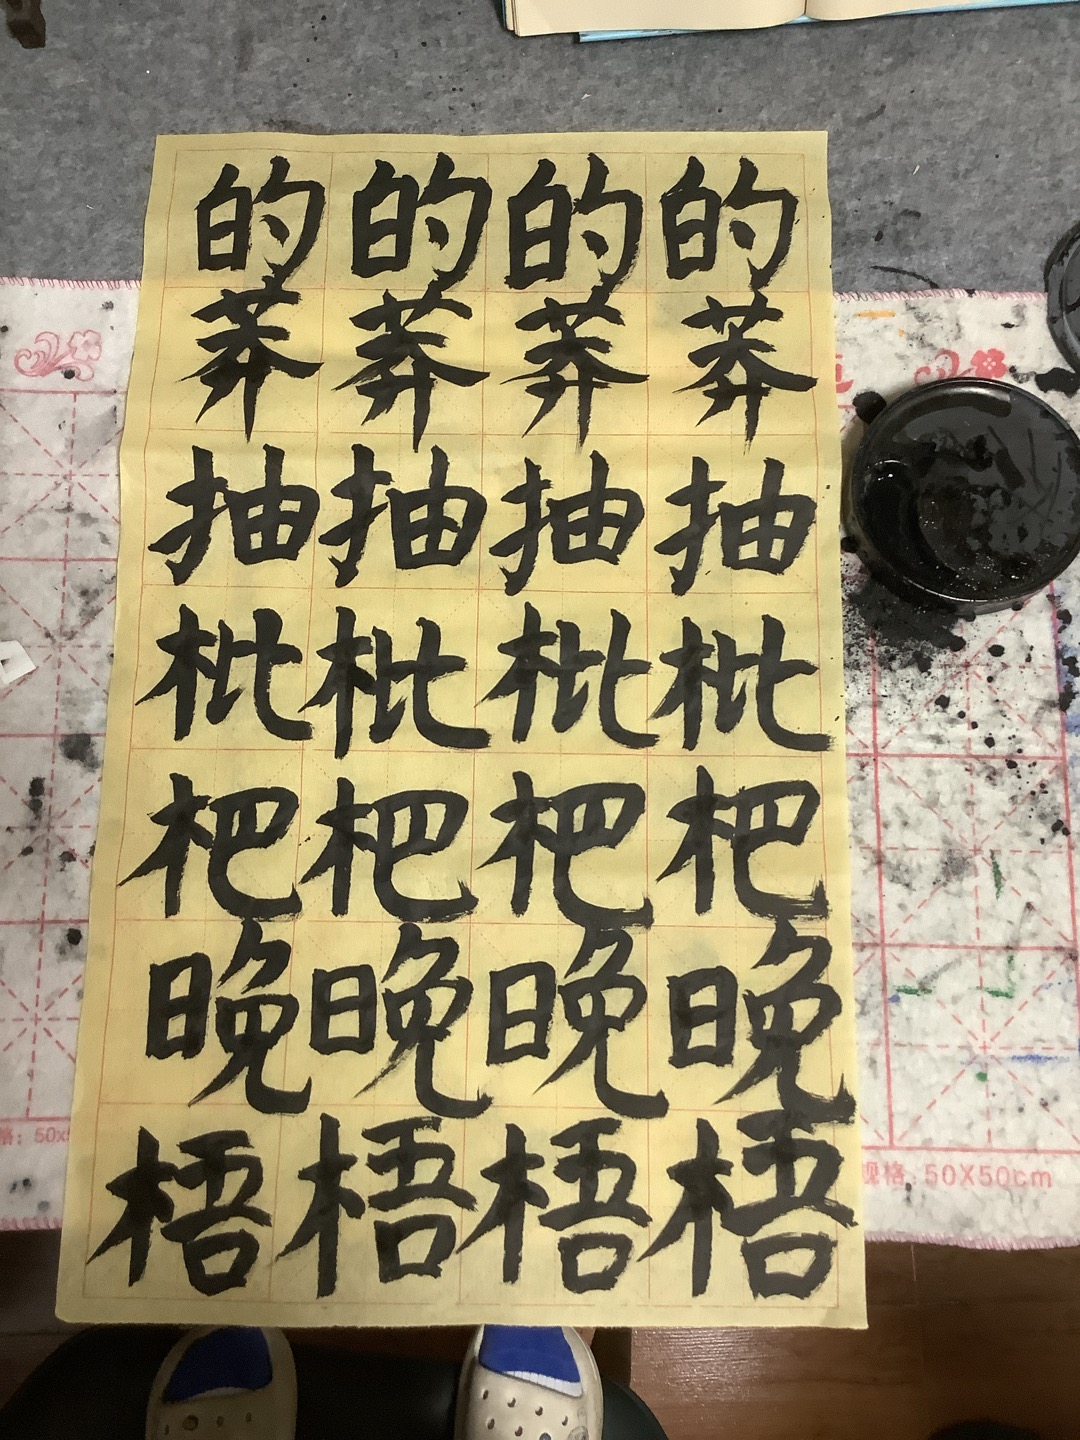 的的的的
莽莽莽莽
抽抽抽抽
枇枇枇枇
杷杷杷杷
晚晚晚晚
梧梧梧梧
规格:50X50cm